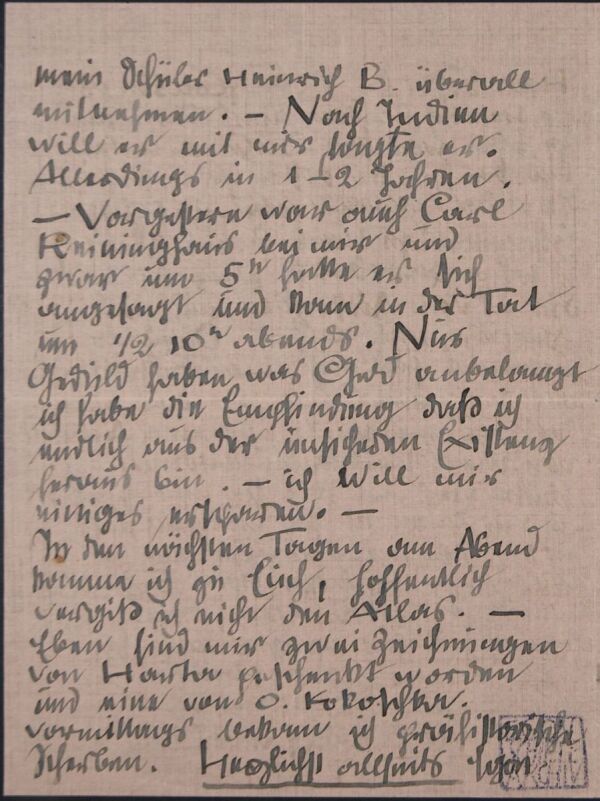 mein Schüler Heinrich B. überall
mitnehmen. – Nach Indien
will er mit mir sagte er.
Allerdings in 1–2 Jahren.
– Vorgestern war auch Carl
Reininghaus bei mir und
zwar um 5ʰ hatte er sich
angesagt und kam in der Tat
um 1/2 10ʰ abends. Nur
Geduld haben was Geld anbelangt
ich habe die Empfindung daß ich
endlich aus der unsicheren Existenz
heraus bin. – ich will mir
einiges ersparen. –
In den nächsten Tagen am Abend
komme ich zu Euch, hoffentlich
vergiß ich nicht den Atlas. –
Eben sind mir zwei Zeichnungen
von Harta geschenkt worden
und eine von O. Kokoschka.
vormittags bekam ich prähistorische
Scherben. Herzlichst allseits Egon
ARCHIV